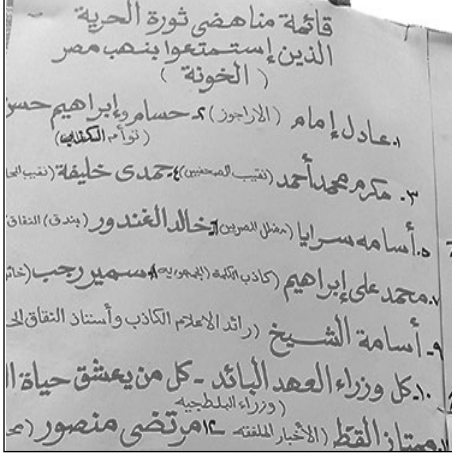 قائمة مناهضى ثورة الحرية
الذين إستمتعوا بنهب مصر
( الخونة )
١. عادل إمام (الاراجوز) ٢. حسام وإبراهيم حسن
(توأم الكدب)
٣. مكرم محمد أحمد (نقيب الصحفيين) ٤. حمدى خليفة (نقيب
٥. أسامه سرايا (مضلل المصريين) ٦. خالد الغندور (بندق) النفاق
٧. محمد على إبراهيم (كاذب الكلمة الجمهوريه) ٨. سمير رجب
٩. أسامة الشيخ (رائد الاعلام الكاذب وأستاذ النفاق
١٠. كل وزراء العهد البائد - كل من يعشق حياة
(وزراء البلطجيه
١١. ممتاز القط (الأخبار الملفقه ١٢. مرتضى منصور